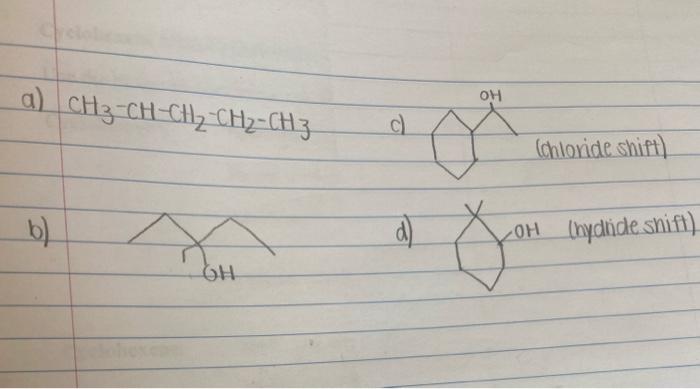 a) CH3-CH-CH2-CH2-CH3
b)
OH
c)
OH
(chloride shift)
d)
OH (hydride shift)